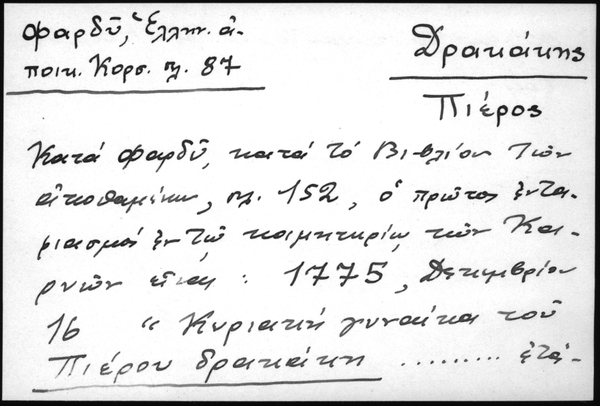 Φαρδῦ, Ἑλλην. ἀ-
ποικ. Κορσ. σλ. 87
Δρακάκης
Πιέρος
Κατά Φαρδῦ, κατά τό Βιβλίον τῶν
ἀποθαμένων, σλ. 152, ὁ πρῶτος ἐντα-
φιασμός ἐν τῷ κοιμητηρίῳ τῶν Καρ-
γιῶν εἶναι : 1775, Δεκεμβρίου
16 " Κυριακή γυναίκα τοῦ
Πιέρου Δρακάκη ......... ἐτά-